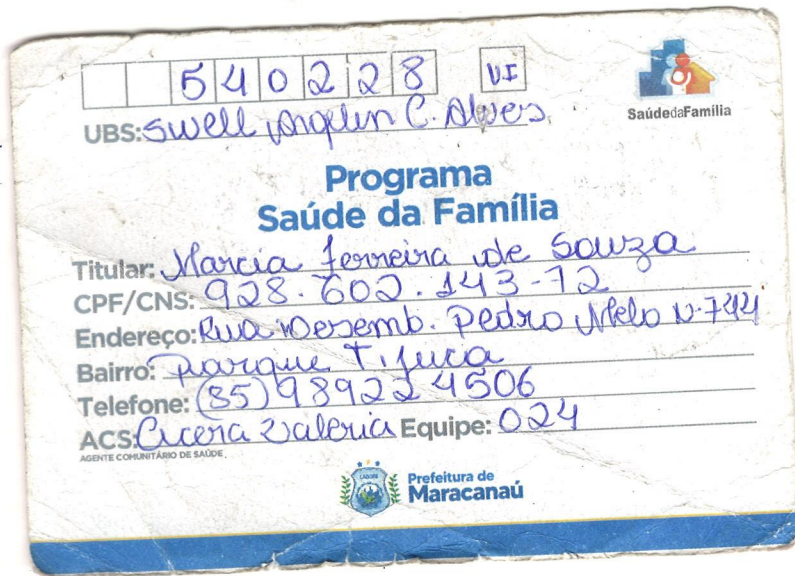 540228 VI
SaúdedaFamília
UBS: Swell Angelin C. Alves
Programa
Saúde da Família
Titular: Marcia Ferreira de Souza
CPF/CNS: 928.602.143-72
Endereço: Rua Desemb. Pedro Melo N.744
Bairro: Parque Tijuca
Telefone: (85)98922 4506
ACS: Cicera Valeria Equipe: 024
AGENTE COMUNITÁRIO DE SAÚDE
Prefeitura de
Maracanaú